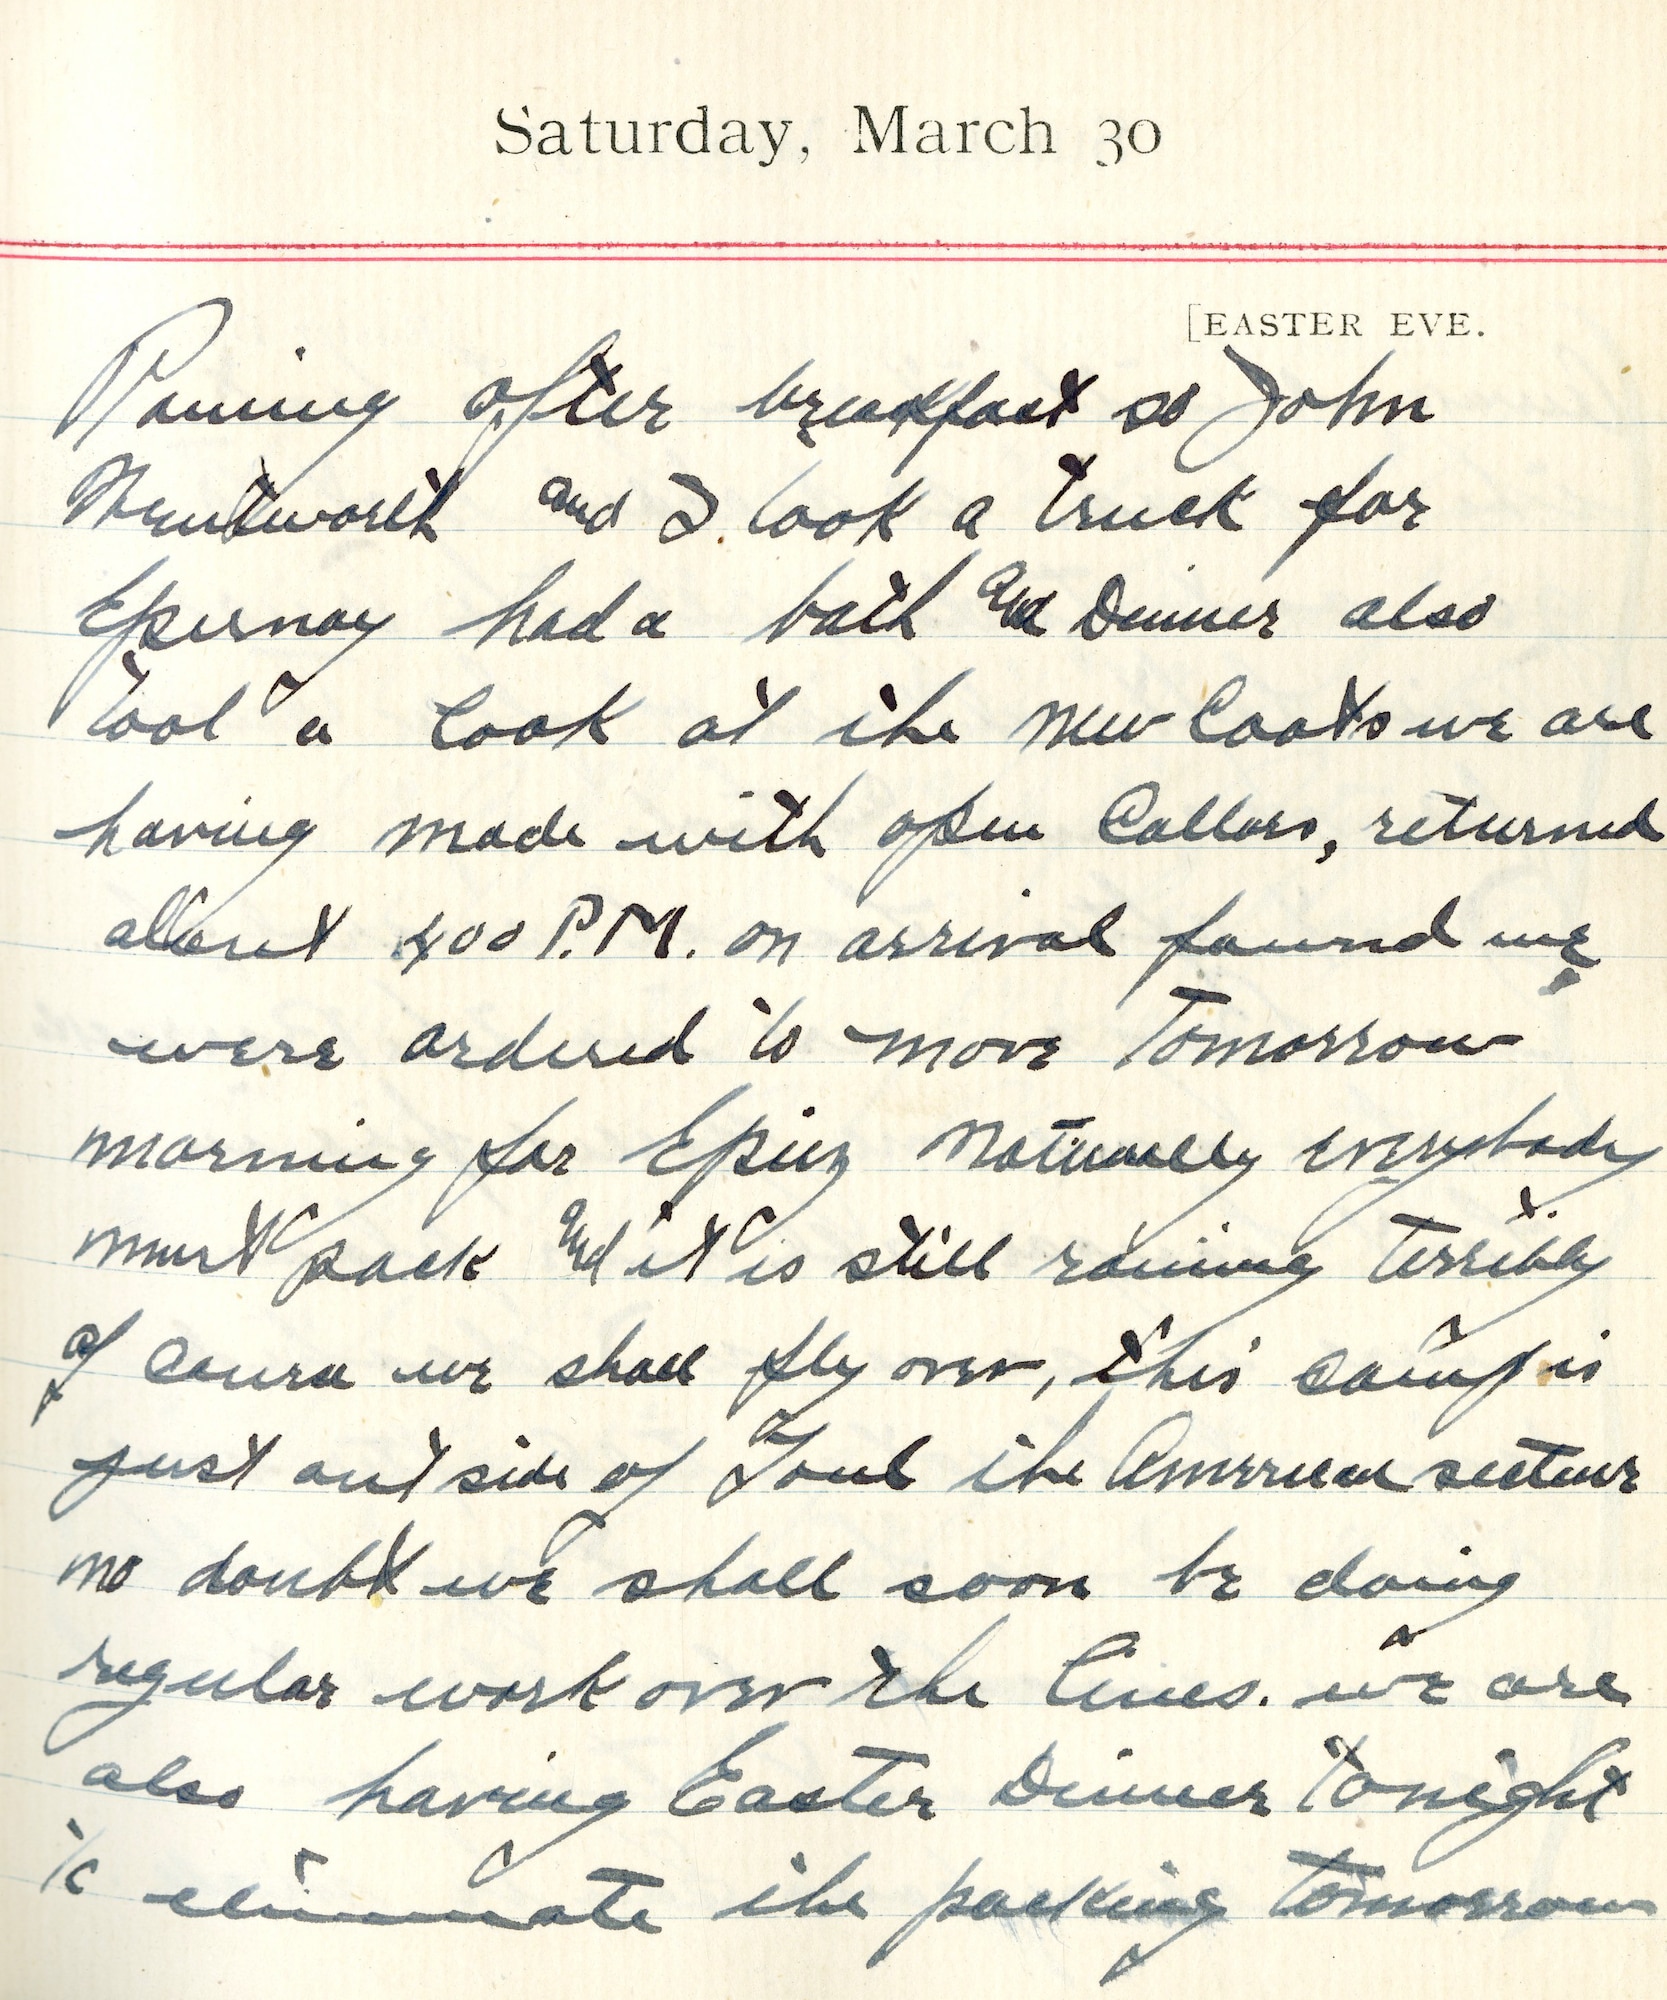 Saturday, March 30
[EASTER EVE.
Raining after breakfast so John
Wentworth and I took a truck for
Epernay had a bath and Dinner also
tool a look at the new Coats we are
having made with open Collars, returned
about 400 P.M. on arrival found we
were ordered to move Tomorrow
morning for Epiez Naturally everybody
must pack and it is still raining terribly
of course we shall fly over, this camp is
just outside of Toul the American secteur
no doubt we shall soon be doing
regular work over the lines. we are
also having Easter Dinner Tonight
to eliminate the packing tomorrow